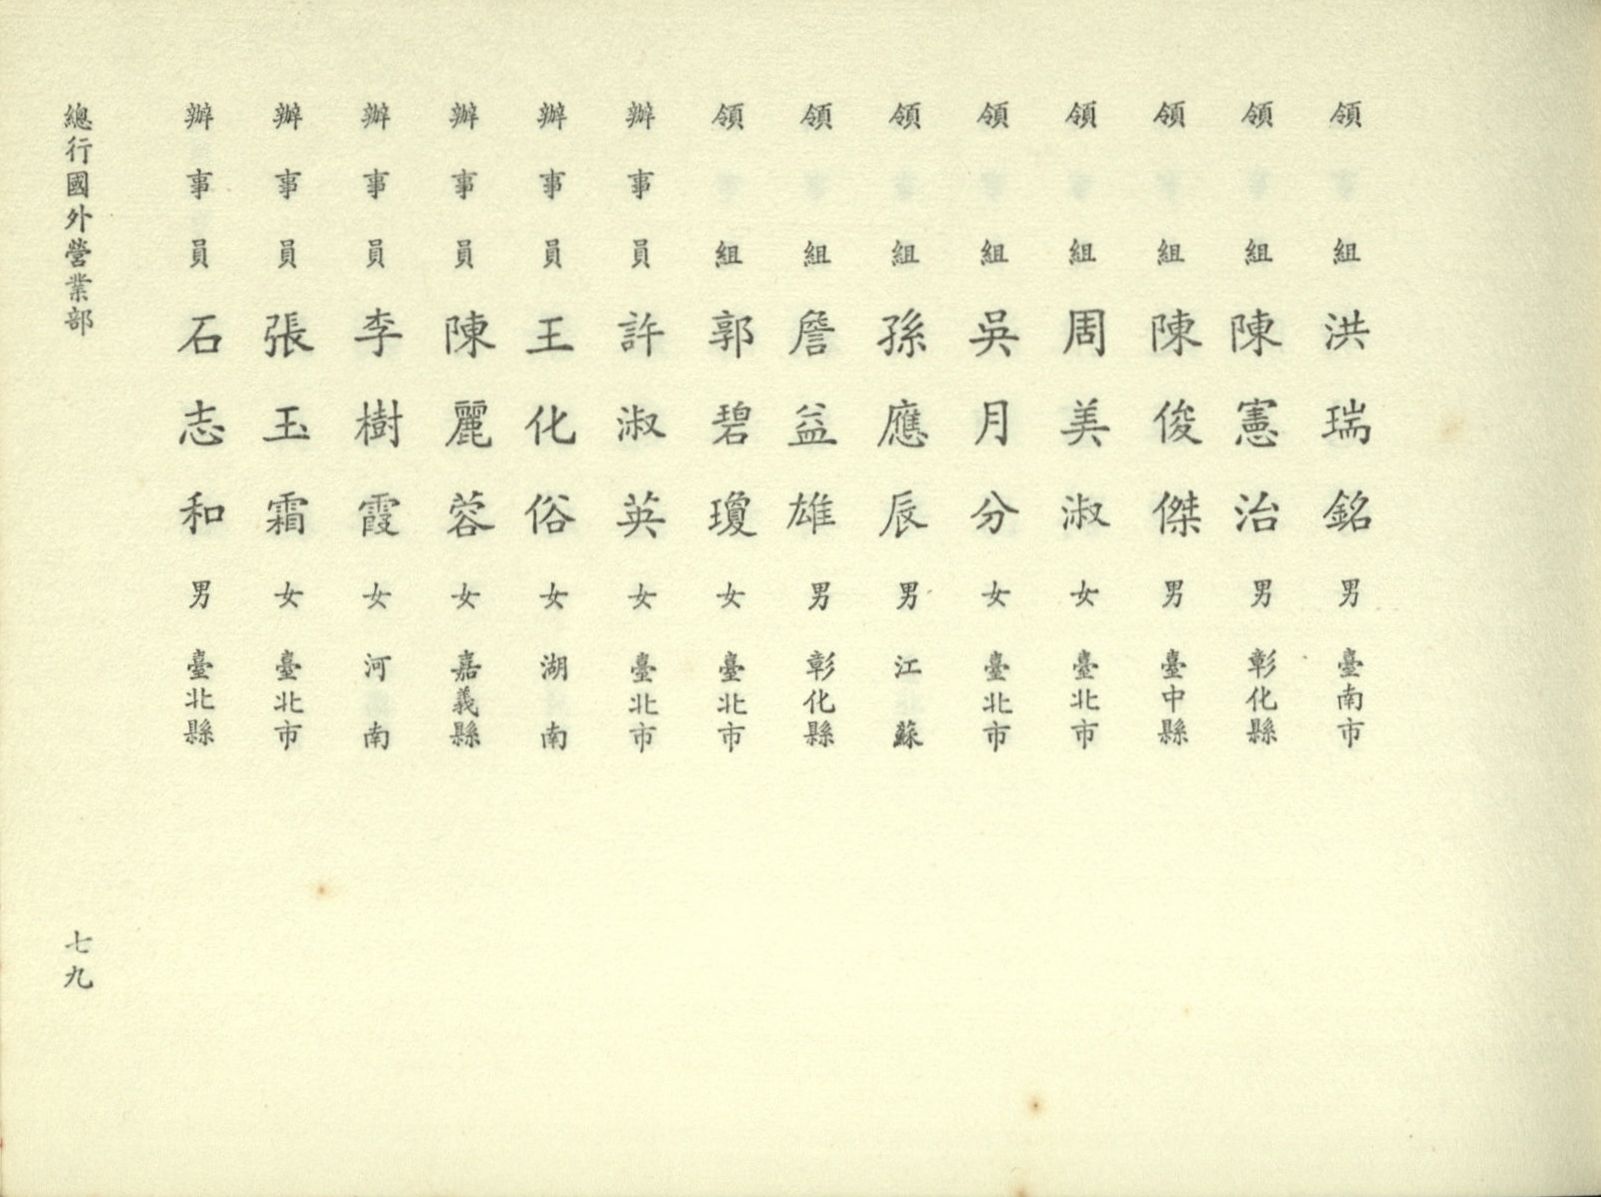 領組洪瑞銘男臺南市
領組陳憲治男彰化縣
領組陳俊傑男臺中縣
領組周美淑女臺北市
領組吳月分女臺北市
領組孫應辰男江蘇
領組詹益雄男彰化縣
領組郭碧瓊女臺北市
辦事員許淑英女臺北市
辦事員王化俗女湖南
辦事員陳麗蓉女嘉義縣
辦事員李樹霞女河南
辦事員張玉霜女臺北市
辦事員石志和男臺北縣
總行國外營業部
七九